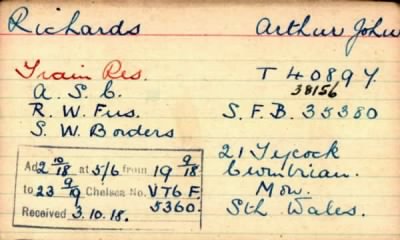 Richards Arthur John
Train Res. T 40897.
38156
A. S. C.
R. W. Fus. S. F. B. 35380
S. W. Borders
21 Ty
Cwmbrian.
Mon.
Sth Wales.
Ad 2 10/18 at 5/6 from 19 9/18
to 23 9/19 Chelsea No. VT6 F.
5360.
Received 3.10.18.